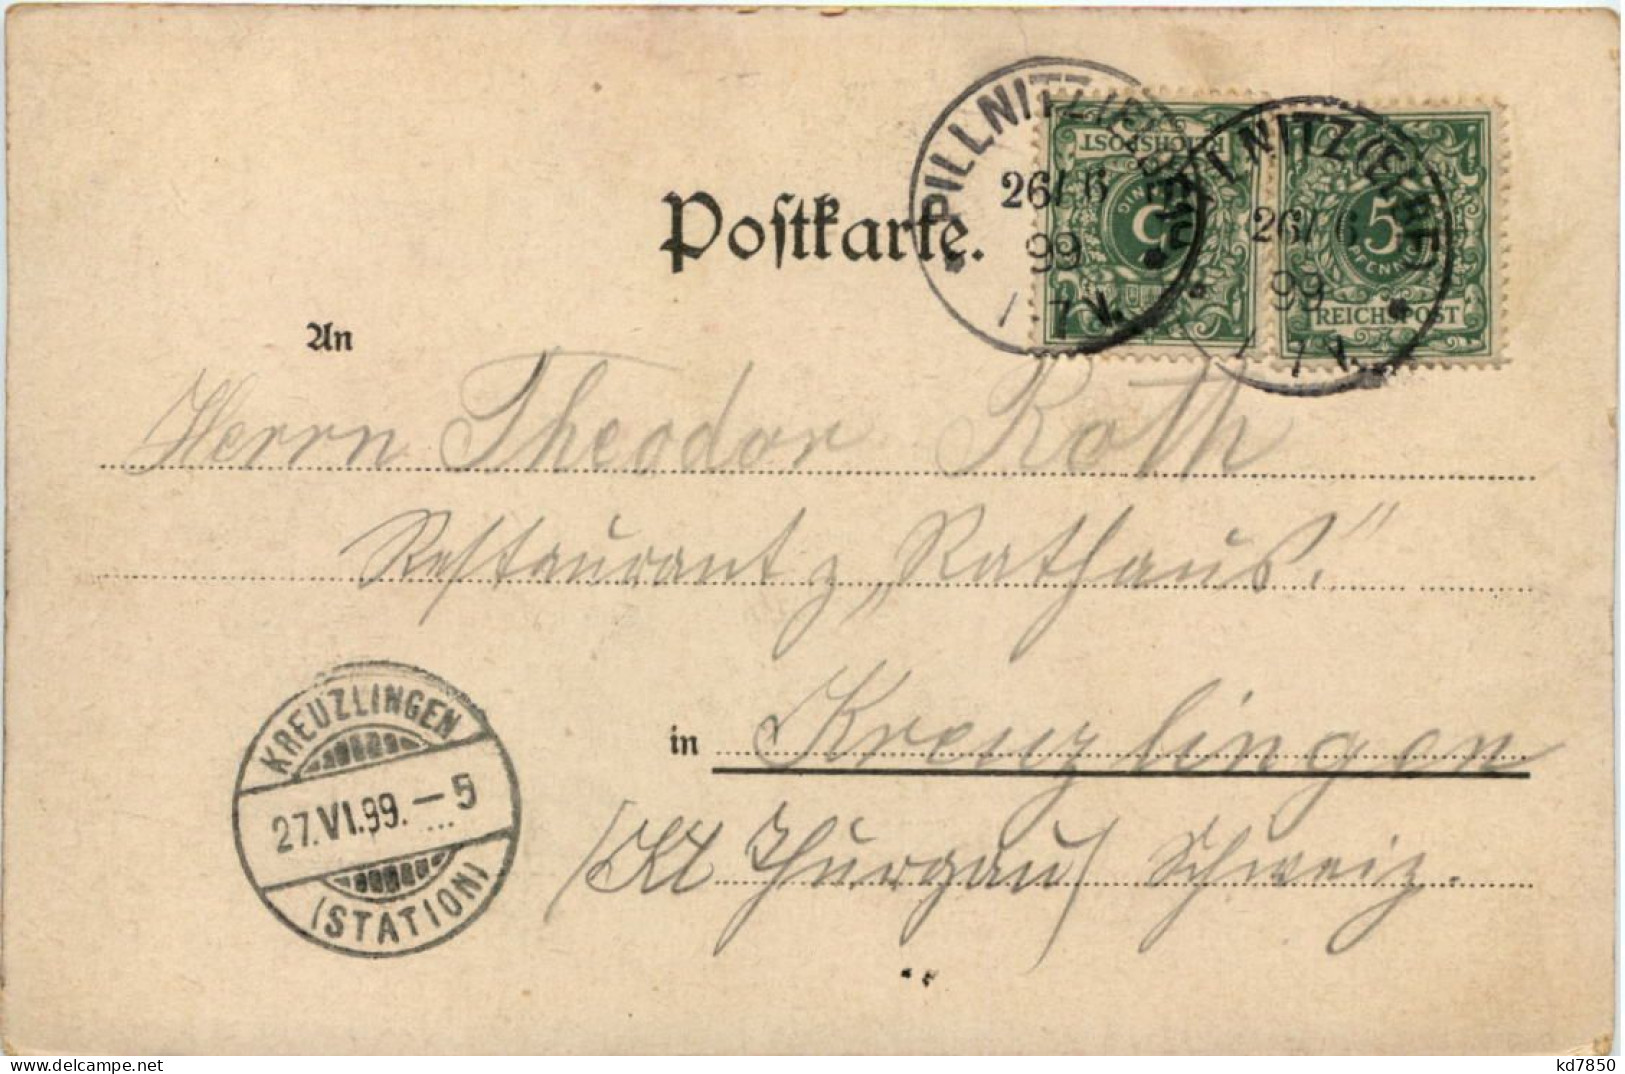 PILLNITZ (ELBE)
26/.6
99
7 V.
PILLNITZ (ELBE)
26/.6
99
7 V.
REICHSPOST
5
PFENNIG
5
PFENNIG
REICHSPOST
Postkarte.
An
Herrn Theodor Roth
Restaurant z „Rathaus."
in Kreuzlingen
(Kt Thurgau) Schweiz.
KREUZLINGEN
27.VI.99.–5
(STATION)
www.delcampe.net
kd7850